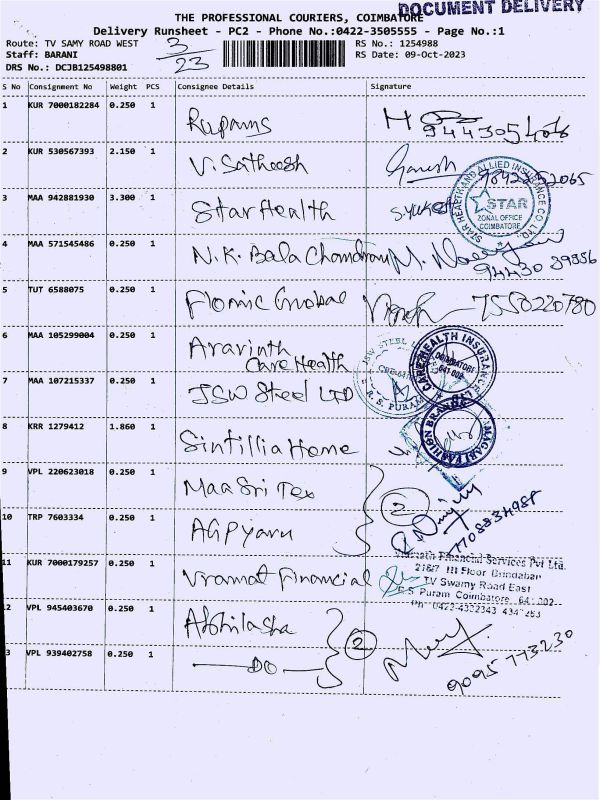 DOCUMENT DELIVERY
THE PROFESSIONAL COURIERS, COIMBATORE
Delivery Runsheet - PC2 - Phone No.:0422-3505555 - Page No.:1
Route: TV SAMY ROAD WEST
Staff: BARANI
DRS No.: DCJB125498801
3/23
RS No.: 1254988
RS Date: 09-Oct-2023
S No Consignment No Weight PCS Consignee Details Signature
1 KUR 7000182284 0.250 1 Rupams
2 KUR 530567393 2.150 1 V. Satheesh Ganesh
3 MAA 942881930 3.300 1 Star Health
STAR HEALTH AND ALLIED INSURANCE CO. LTD.
STAR
ZONAL OFFICE
COIMBATORE
4 MAA 571545486 0.250 1 N.K. Bala Chandran
94430 39356
5 TUT 6588075 0.250 1 Flomic Global 7550220780
6 MAA 105299004 0.250 1 Aravinth
Care Health
CARE HEALTH INSURANCE
COIMBATORE
641 002
7 MAA 107215337 0.250 1 JSW Steel LTD
JSW STEEL
R.S. PURAM
8 KRR 1279412 1.860 1 Sintillia Home
9 VPL 220623018 0.250 1 Maa Sri Tex
2
10 TRP 7603334 0.250 1
11 KUR 7000179257 0.250 1 Vramat Financial
Financial Services Pvt Ltd.
218/7 III Floor Brindaban
TV Swamy Road East
R.S Puram Coimbatore 641 002
12 VPL 945403670 0.250 1 Abhilasha
2
13 VPL 939402758 0.250 1 DO
9095 773230